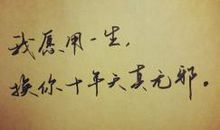 我愿用一生,
换你十年天真无邪。